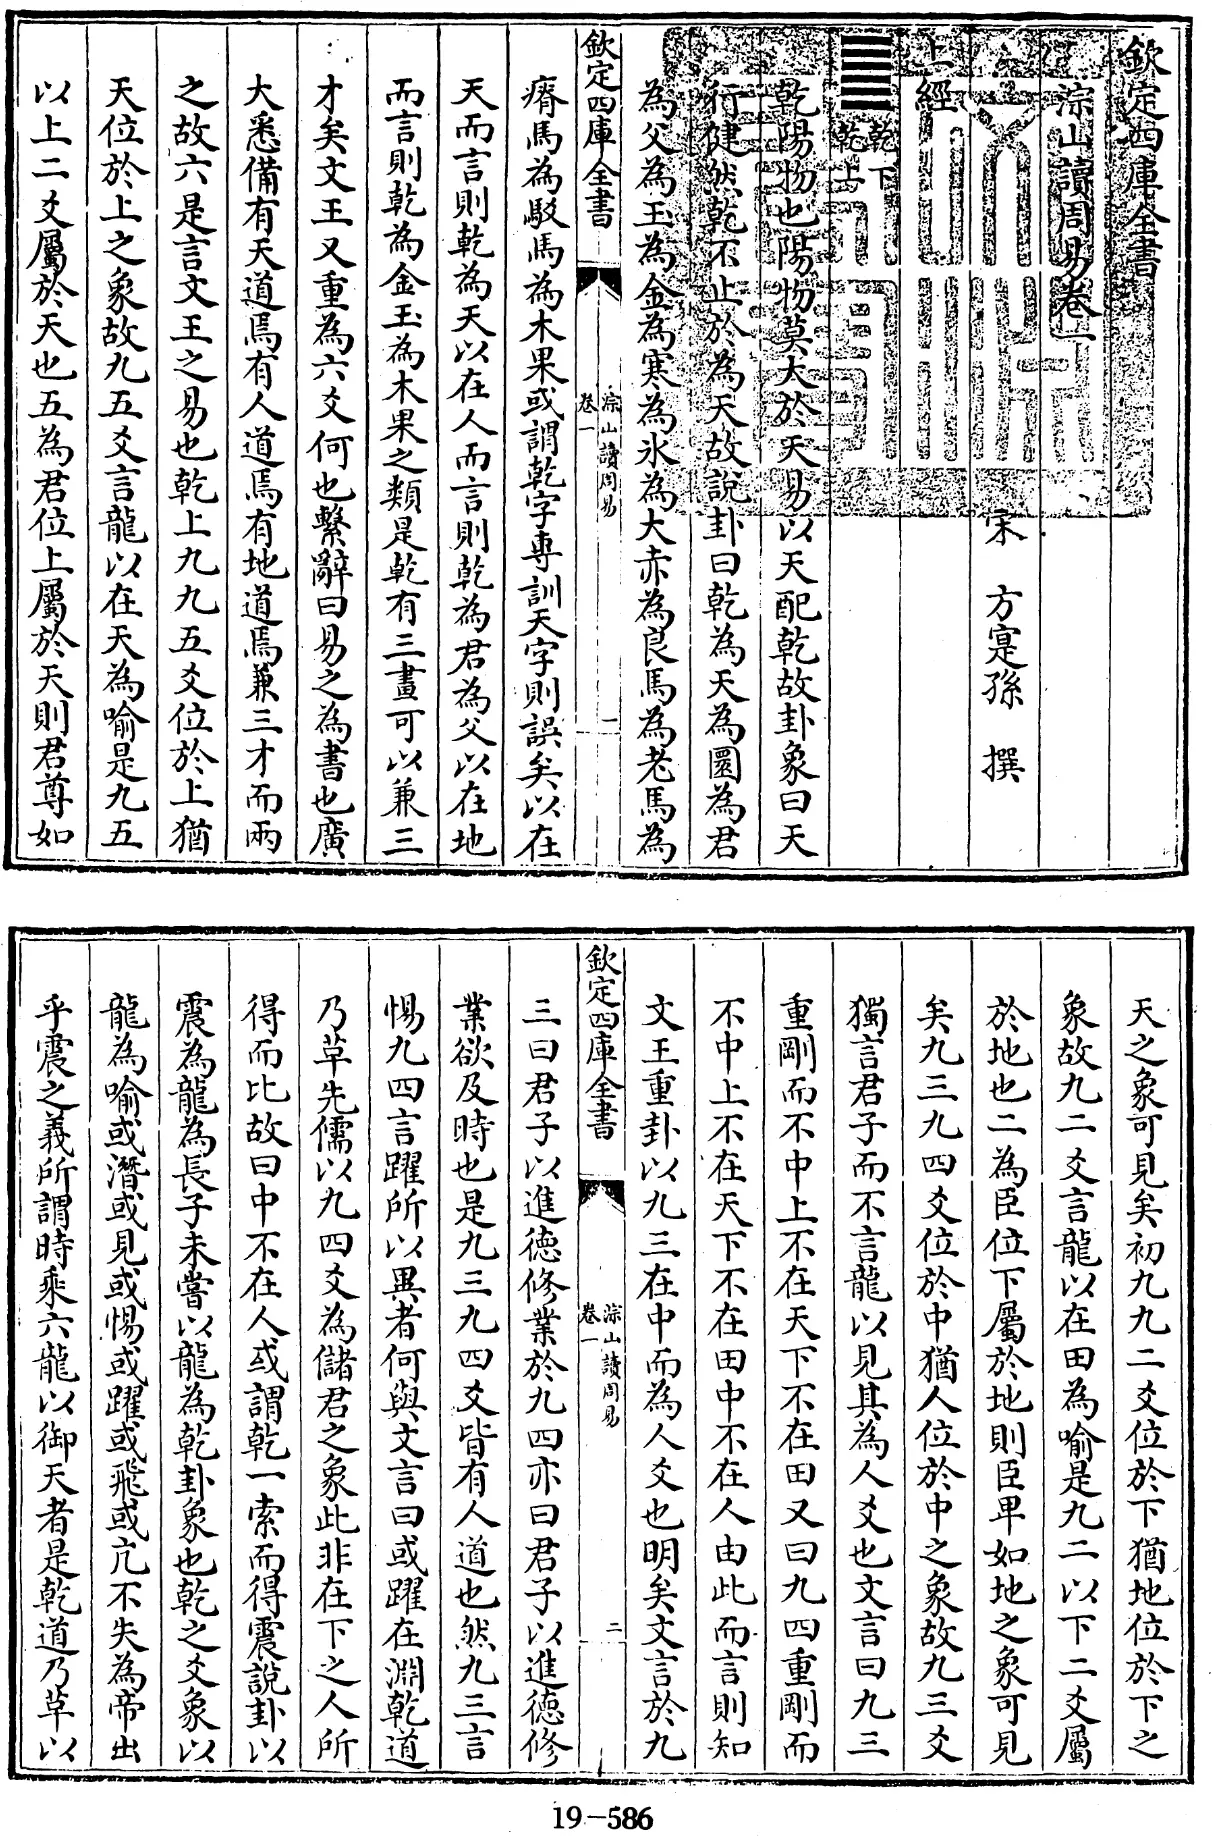 欽定四庫全書
淙山讀周易卷一
宋 方寔孫 撰
上經
乾下
乾上
乾陽物也陽物莫大於天易以天配乾故卦象曰天
行健然乾不止於為天故說卦曰乾為天為圜為君
為父為玉為金為寒為氷為大赤為良馬為老馬為
欽定四庫全書
淙山讀周易
卷一
一
瘠馬為駁馬為木果或謂乾字專訓天字則誤矣以在
天而言則乾為天以在人而言則乾為君為父以在地
而言則乾為金玉為木果之類是乾有三畫可以兼三
才矣文王又重為六爻何也繫辭曰易之為書也廣
大悉備有天道焉有人道焉有地道焉兼三才而兩
之故六是言文王之易也乾上九九五爻位於上猶
天位於上之象故九五爻言龍以在天為喻是九五
以上二爻屬於天也五為君位上屬於天則君尊如
天之象可見矣初九九二爻位於下猶地位於下之
象故九二爻言龍以在田為喻是九二以下二爻屬
於地也二為臣位下屬於地則臣卑如地之象可見
矣九三九四爻位於中猶人位於中之象故九三爻
獨言君子而不言龍以見其為人爻也文言曰九三
重剛而不中上不在天下不在田又曰九四重剛而
不中上不在天下不在田中不在人由此而言則知
文王重卦以九三在中而為人爻也明矣文言於九
欽定四庫全書
淙山讀周易
卷一
二
三曰君子以進德修業於九四亦曰君子以進德修
業欲及時也是九三九四爻皆有人道也然九三言
惕九四言躍所以異者何與文言曰或躍在淵乾道
乃革先儒以九四爻為儲君之象此非在下之人所
得而比故曰中不在人或謂乾一索而得震說卦以
震為龍為長子未嘗以龍為乾卦象也乾之爻象以
龍為喻或潛或見或惕或躍或飛或亢不失為帝出
乎震之義所謂時乘六龍以御天者是乾道乃革以
19-586